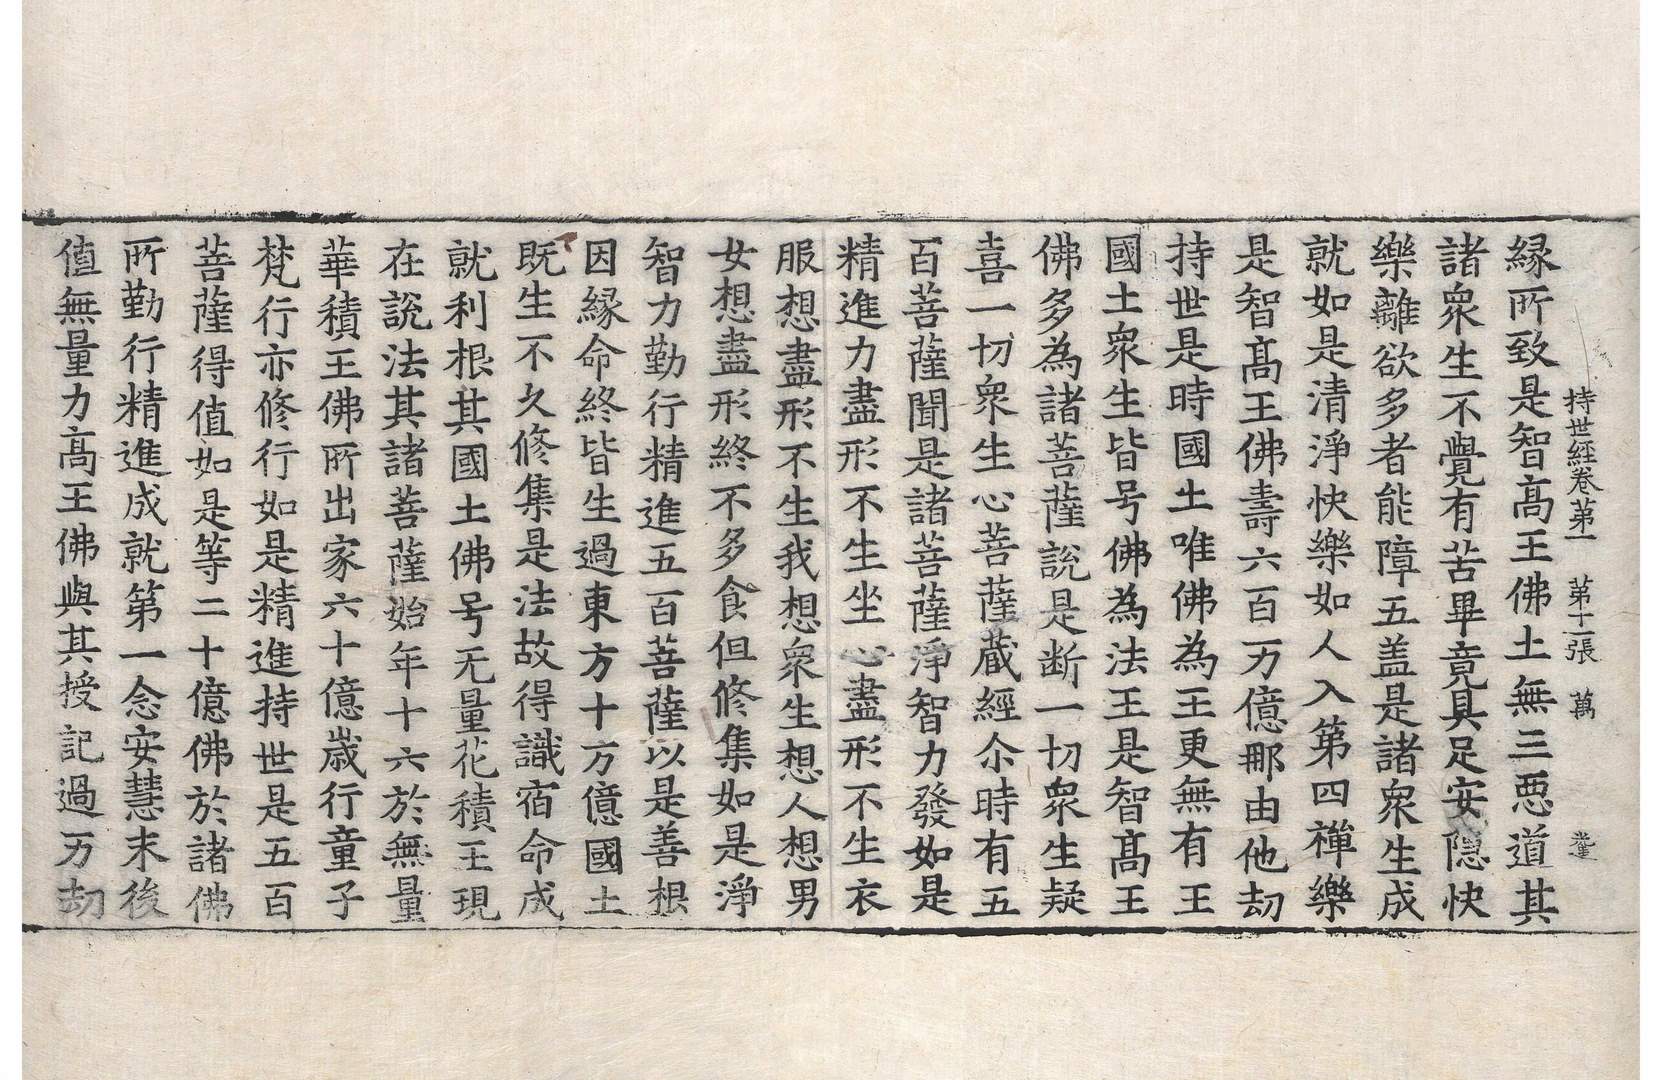 持世經卷第一 第十二張 萬
縁所致是智髙王佛土無三惡道其
諸衆生不覺有苦畢竟具足安隱快
樂離欲多者能障五盖是諸衆生成
就如是清淨快樂如人入第四禪樂
是智髙王佛壽六百万億那由他劫
持世是時國土唯佛為王更無有王
國土衆生皆号佛為法王是智髙王
佛多為諸菩薩說是断一切衆生疑
喜一切衆生心菩薩藏經尒時有五
百菩薩聞是諸菩薩淨智力發如是
精進力盡形不生坐心盡形不生衣
服想盡形不生我想衆生想人想男
女想盡形終不多食但修集如是淨
智力勤行精進五百菩薩以是善根
因縁命終皆生過東方十万億國土
既生不久修集是法故得識宿命成
就利根其國土佛号无量花積王現
在說法其諸菩薩始年十六於無量
華積王佛所出家六十億歲行童子
梵行亦修行如是精進持世是五百
菩薩得值如是等二十億佛於諸佛
所勤行精進成就第一念安慧末後
值無量力髙王佛與其授記過万劫